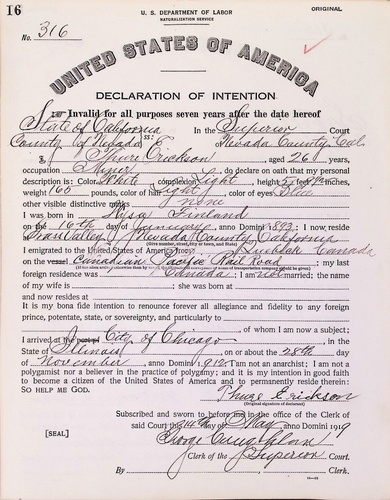 16
U. S. DEPARTMENT OF LABOR
NATURALIZATION SERVICE
ORIGINAL
No. 316
UNITED STATES OF AMERICA
DECLARATION OF INTENTION
Invalid for all purposes seven years after the date hereof
State of California
In the Superior Court
County of Nevada ss:
of Nevada County, Cal
I, Thure Erickson, aged 26 years,
occupation Miner, do declare on oath that my personal
description is: Color White, complexion Light, height 5 feet inches,
weight 160 pounds, color of hair Light, color of eyes Blue
other visible distinctive marks none
I was born in Finland
on the 16th day of January, anno Domini 1893; I now reside
at Grass Valley, Nevada County, California
(Give number, street, city or town, and State)
I emigrated to the United States of America from Canada
on the vessel Canadian Pacific Rail Road; my last
(If the alien arrived otherwise than by vessel, the character of conveyance or name of transportation company should be given.)
foreign residence was Canada; I am not married; the name
of my wife is; she was born at
and now resides at
It is my bona fide intention to renounce forever all allegiance and fidelity to any foreign
prince, potentate, state, or sovereignty, and particularly to
, of whom I am now a subject;
I arrived at the port of City of Chicago, in the
State of Illinois, on or about the 28th day
of November, anno Domini 1912; I am not an anarchist; I am not a
polygamist nor a believer in the practice of polygamy; and it is my intention in good faith
to become a citizen of the United States of America and to permanently reside therein:
SO HELP ME GOD.
Thure Erickson
(Original signature of declarant)
Subscribed and sworn to before me in the office of the Clerk of
said Court this 14th day of May, anno Domini 1919
[SEAL]
Clerk of the Superior Court.
By, Clerk.